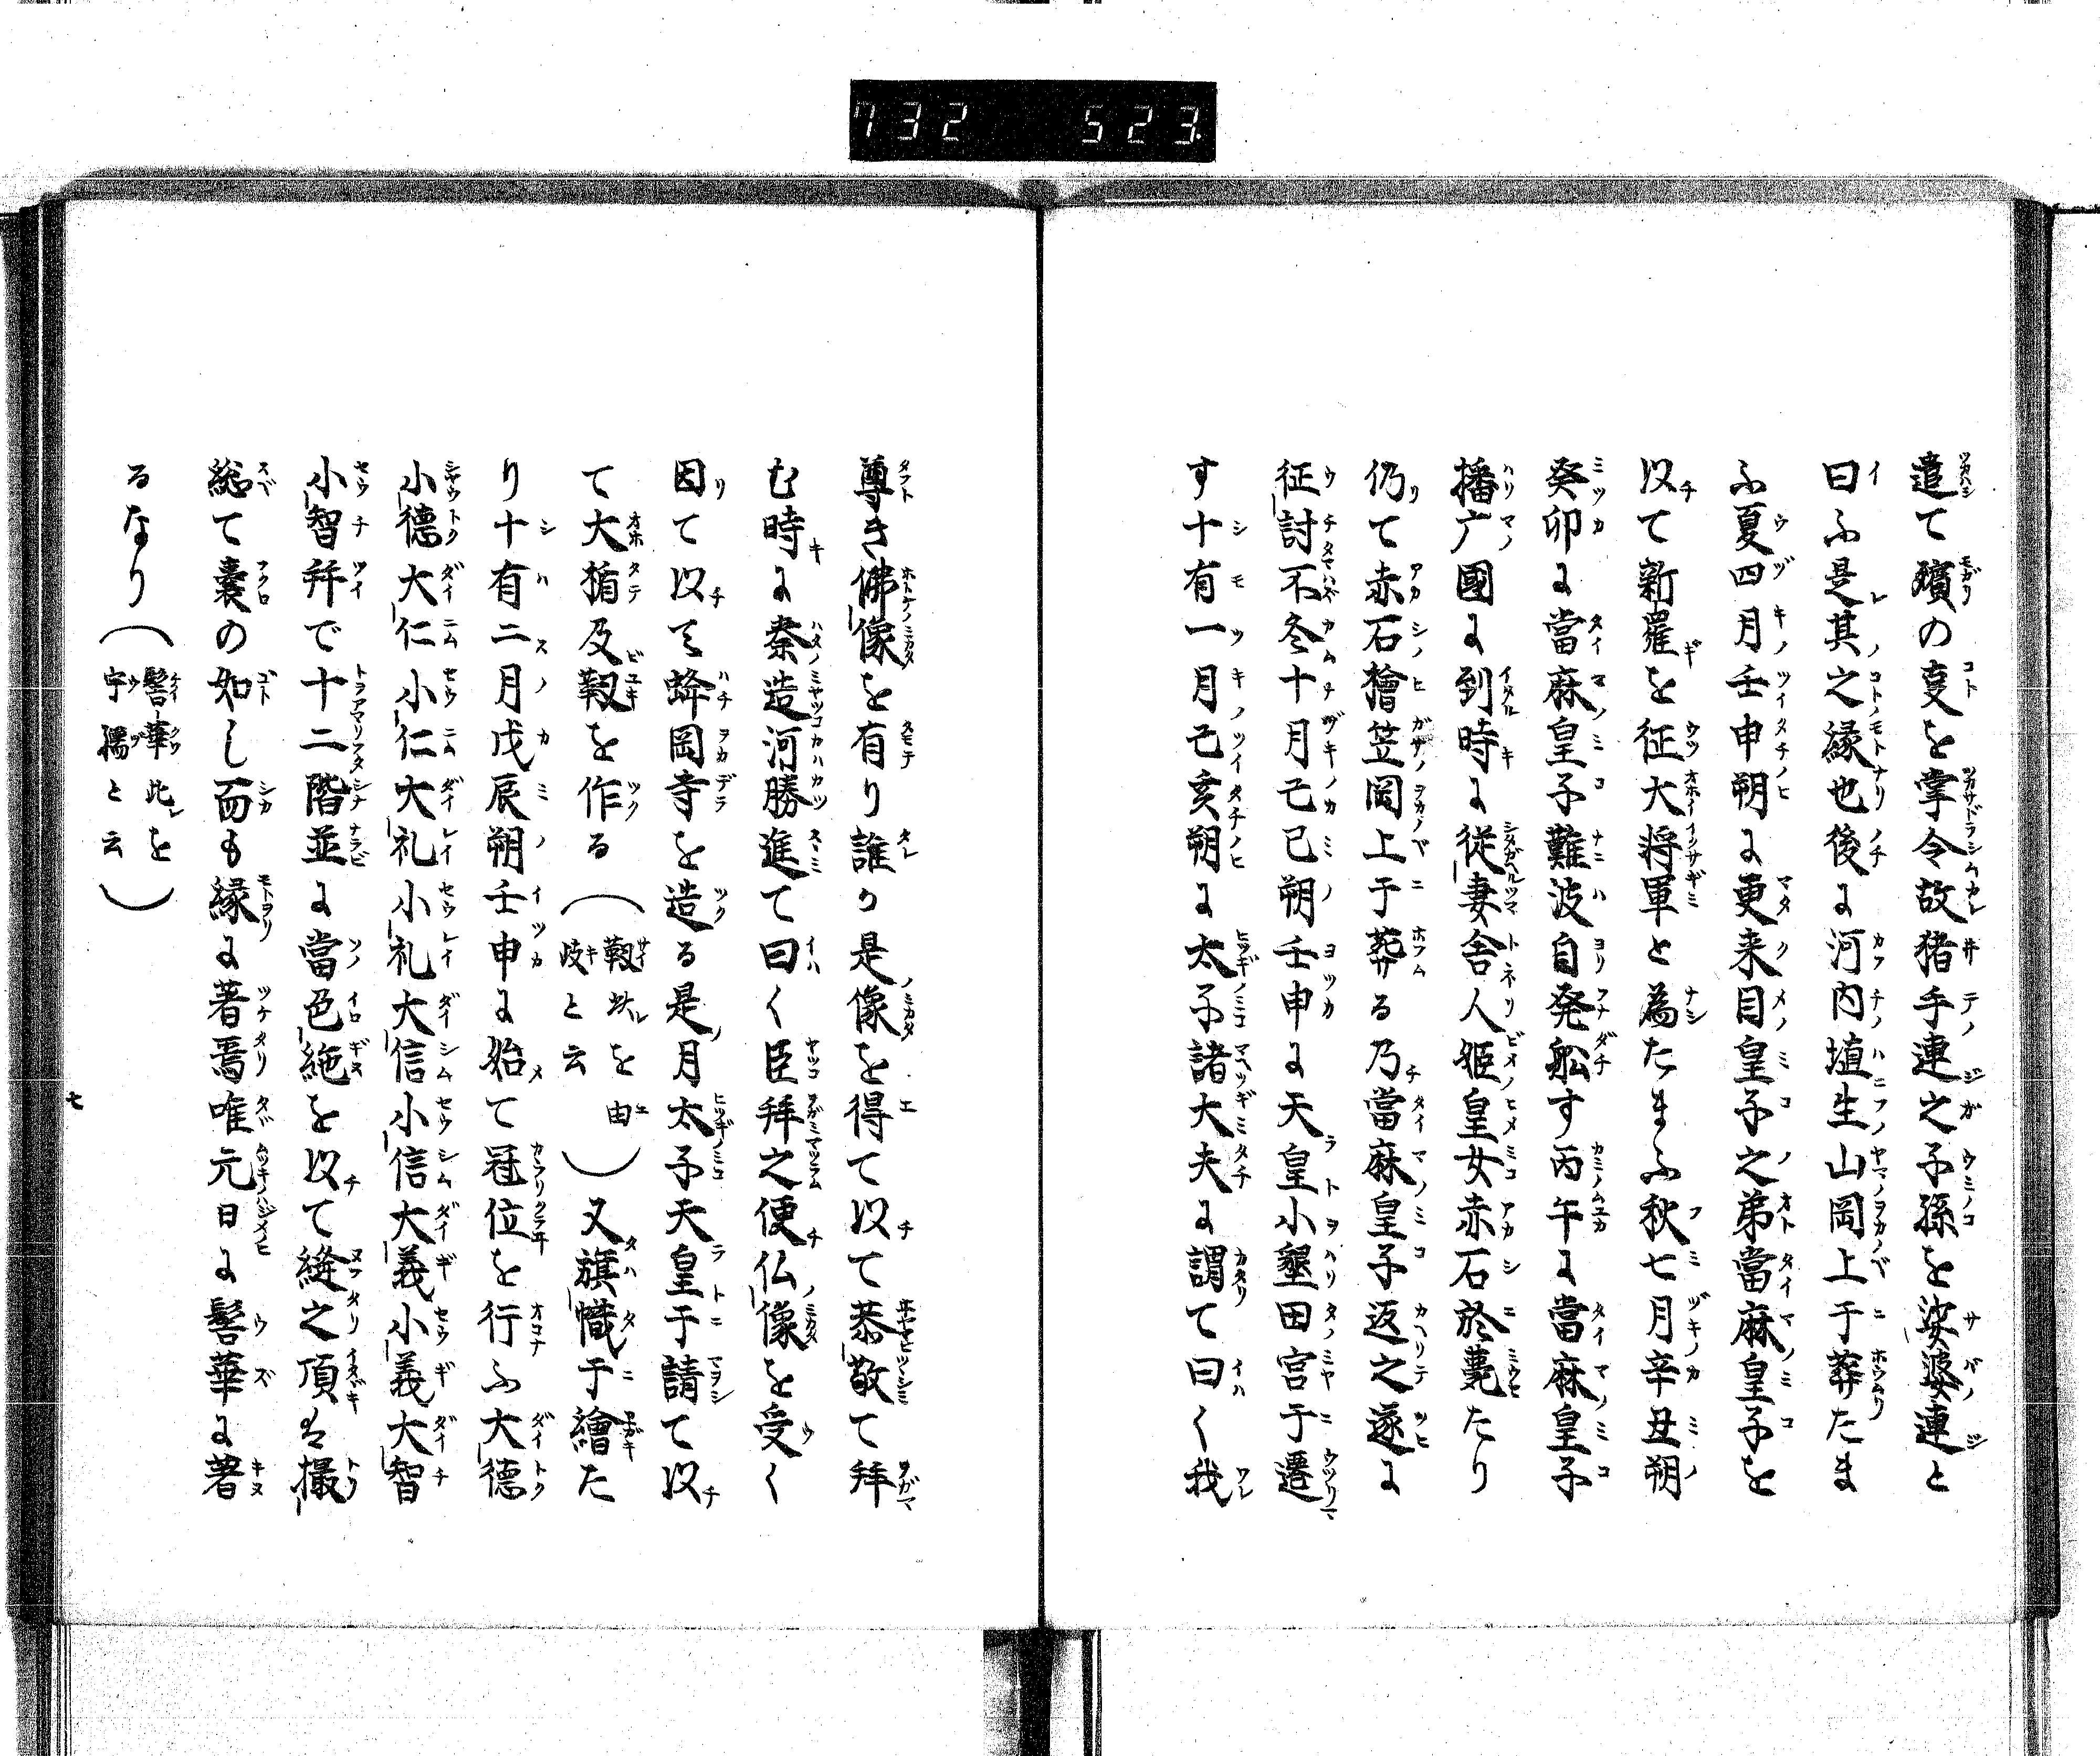 732 523
遣て殯の叓を掌令故猪手連之子孫を娑婆連と
曰ふ是其之縁也後に河内埴生山岡上于葬たま
ふ夏四月壬申朔に更来目皇子之弟當麻皇子を
以て新羅を征大将軍と為たまふ秋七月辛丑朔
癸卯に當麻皇子難波自発舩す丙午に當麻皇子
播广國に到時に従妻舎人姫皇女赤石於薨たり
仍て赤石檜笠岡上于葬る乃當麻皇子返之遂に
征討不冬十月己巳朔壬申に天皇小墾田宮于遷
す十有一月己亥朔に太子諸大夫に謂て曰く我
尊き佛像を有り誰か是像を得て以て恭敬て拜
む時に秦造河勝進て曰く臣拜之便仏像を受く
因て以て蜂岡寺を造る是月太子天皇于請て以
て大楯及靫を作る（靫此を由岐と云）又旗幟于繪た
り十有二月戊辰朔壬申に始て冠位を行ふ大德
小德大仁小仁大礼小礼大信小信大義小義大智
小智幷で十二階並に當色絁を以て縫之頂は撮
総て嚢の如し而も縁に著焉唯元日に髻華に著
るなり（髻華此を宇孺と云）
七